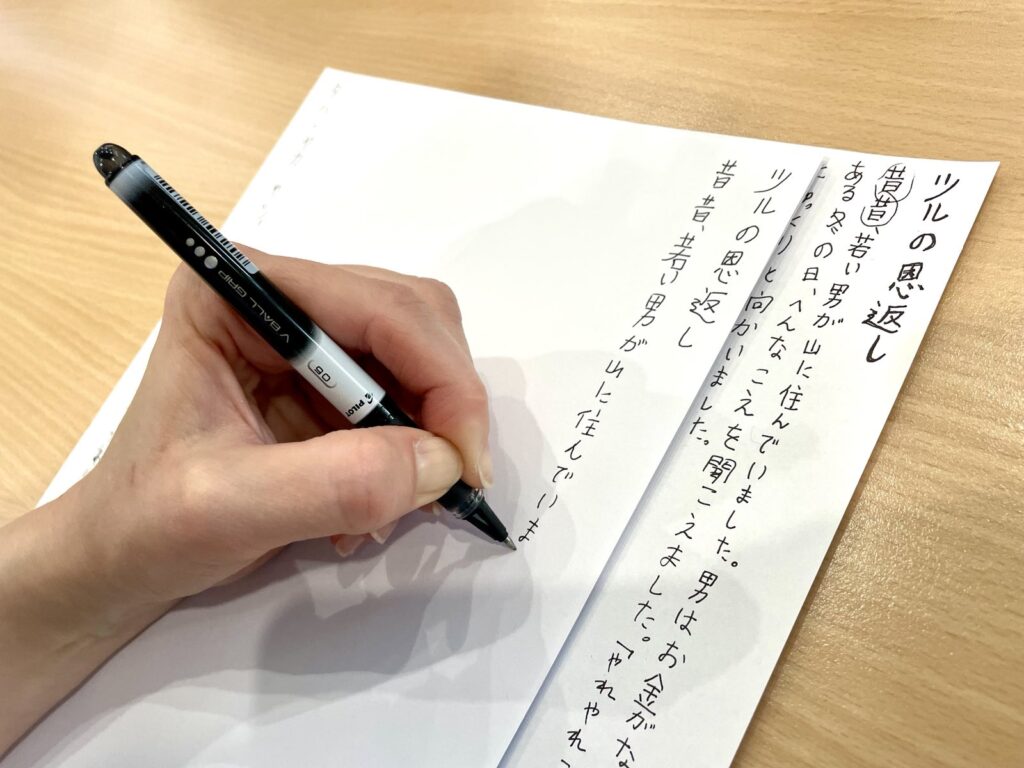 ツルの恩返し
昔昔、若い男が山に住んでいました。男はお金がな
ある冬の日、へんなこえを聞こえました。「やれやれ
ゆっくりと向かいました。
ツルの恩返し
昔昔、若い男が山に住んでいま
V BALL GRIP
05
PILOT